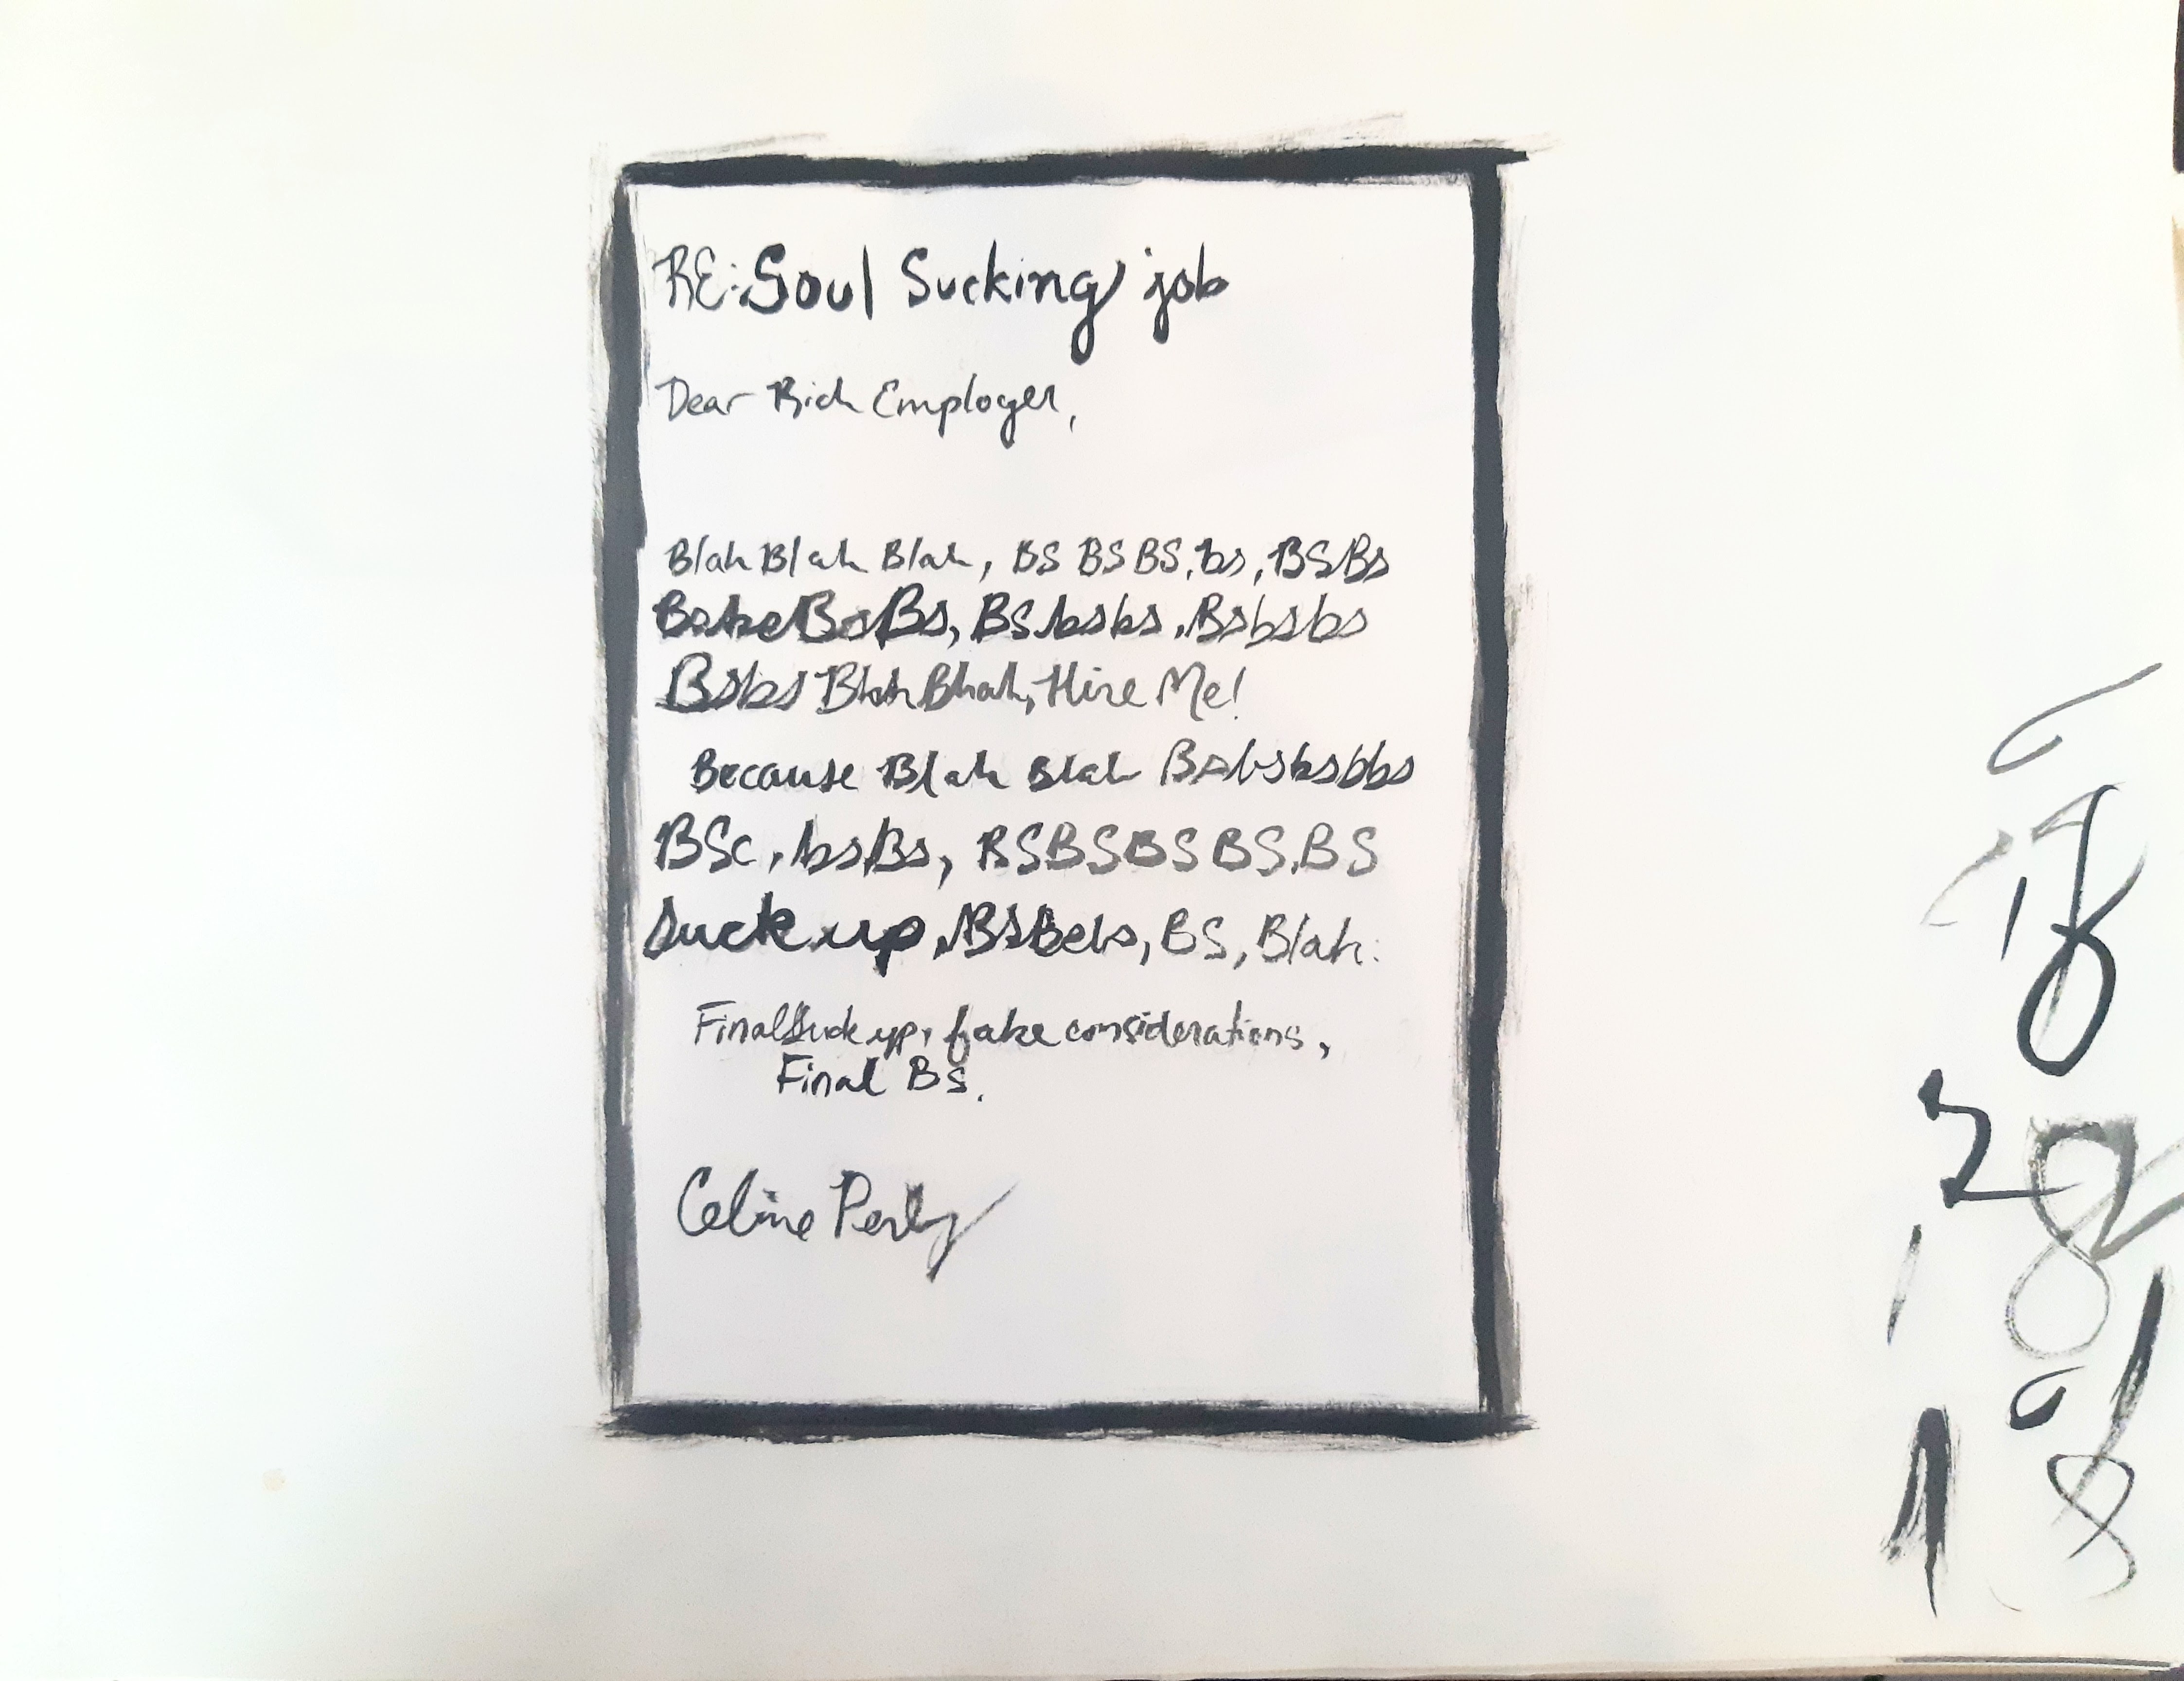 RE: Soul Sucking job
Dear Rich Employer,
Blah Blah Blah, BS BS BS, bs, BSBs
BsBs, BS bsbs, Bsbsbs
Bsbs Blah Blah, Hire Me!
Because Blah Blah Bsbsbsbbs
BSc, bsBs, BSBSBS BS, BS
Suck up, BS, Blah.
Final Suck up, fake considerations,
Final BS.
Celine Perly